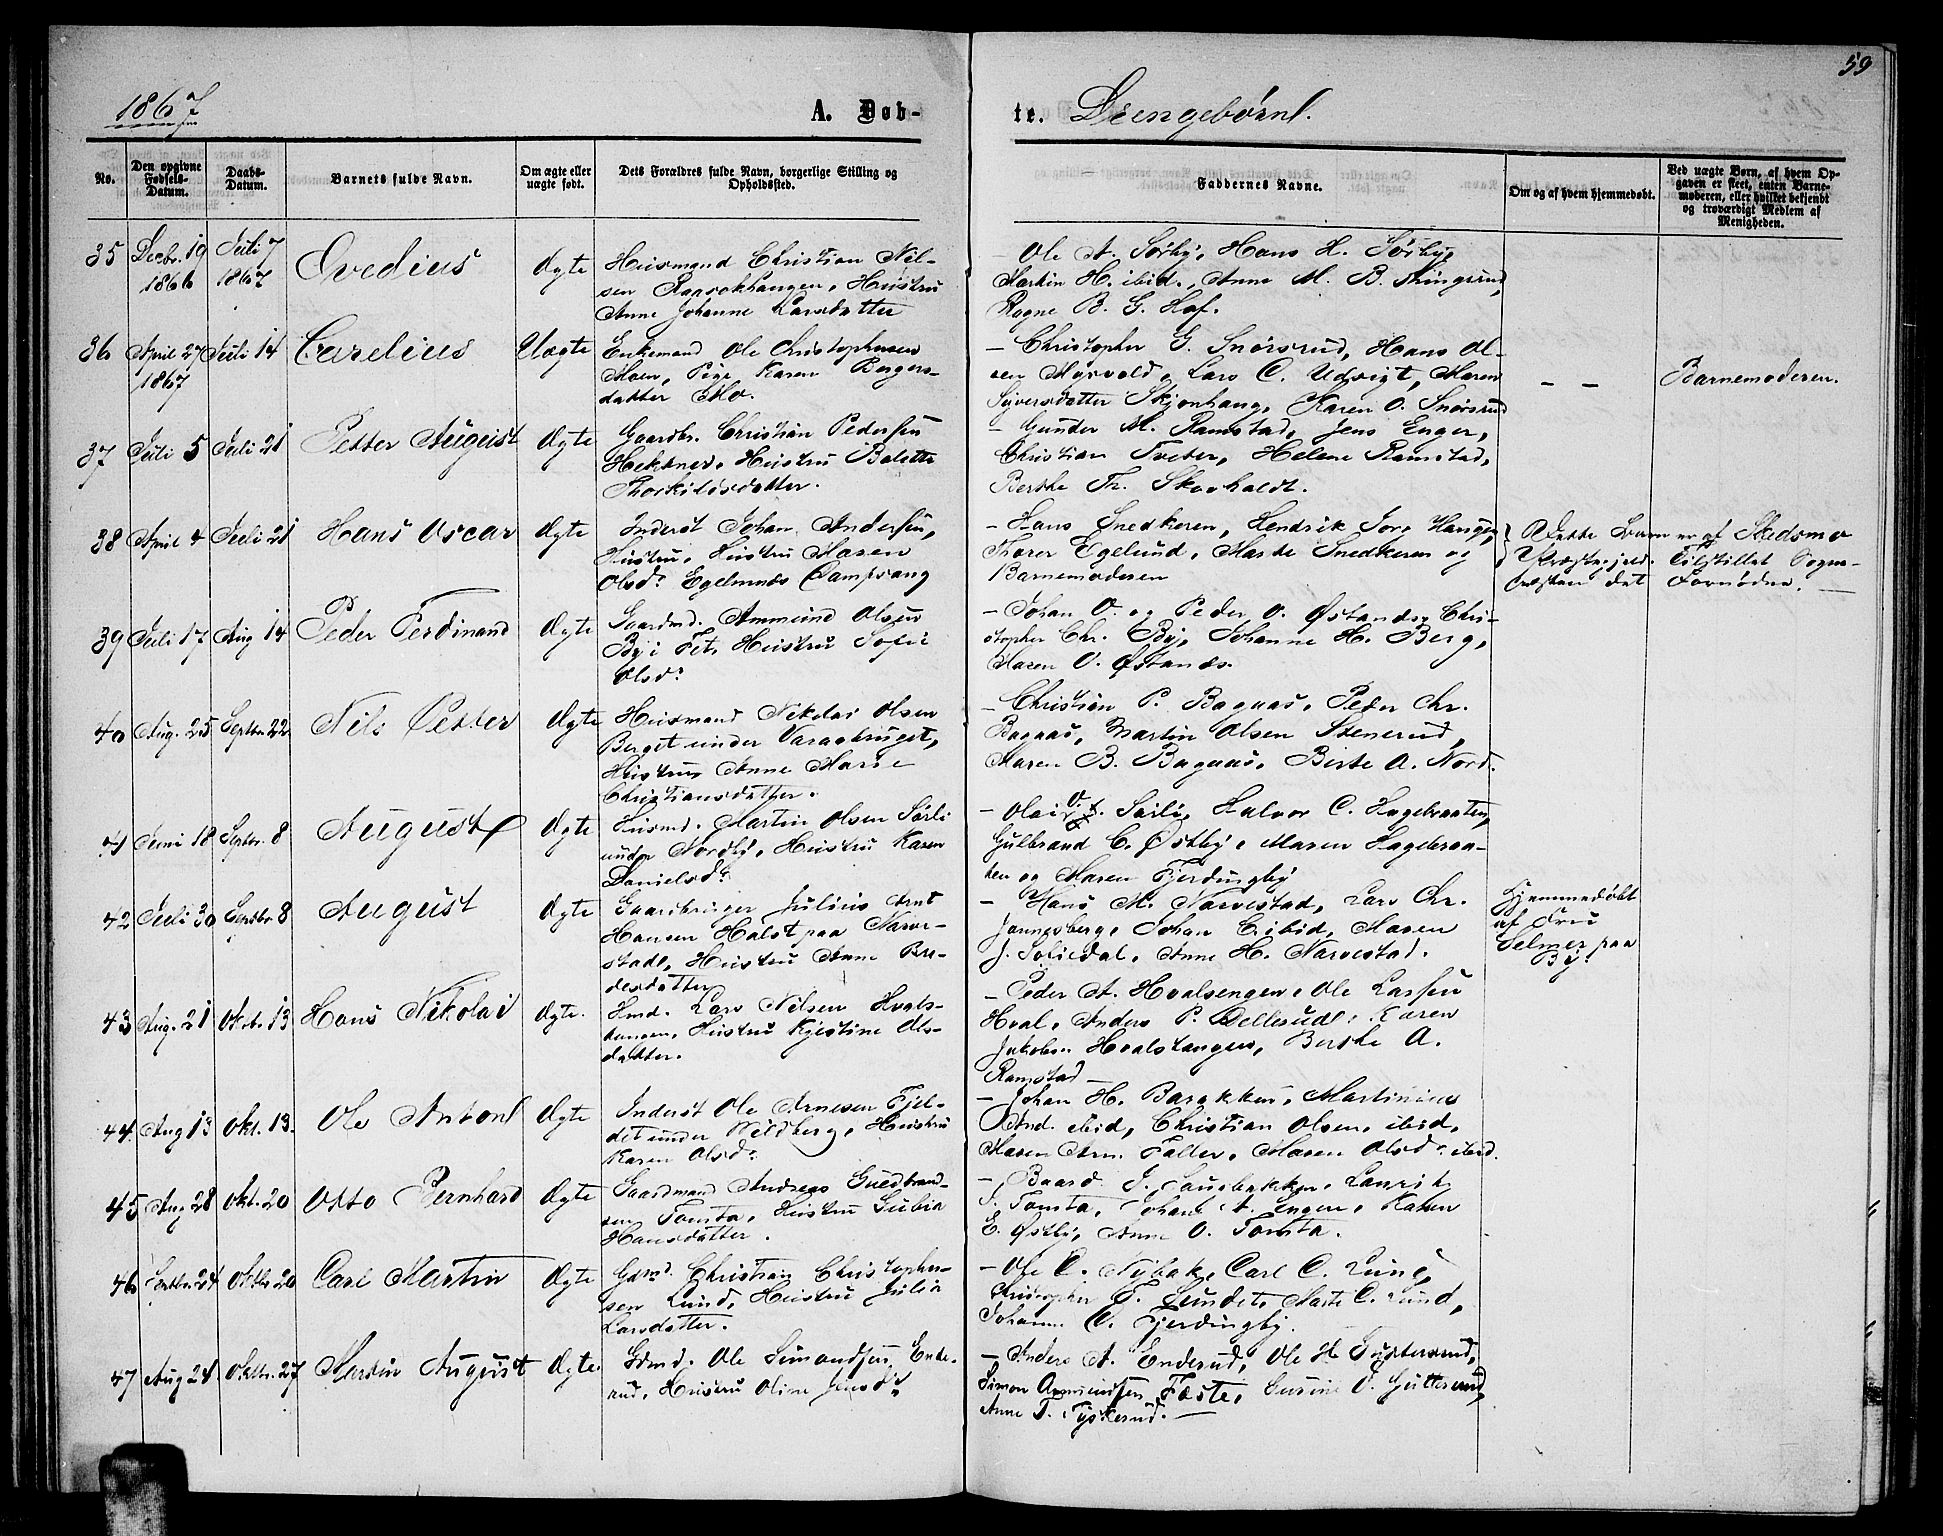 59
1867
A. Døb-
te. Drengebørn.
No.
Den opgivne Fødsels-Datum.
Daabs-Datum.
Barnets fulde Navn.
Om ægte eller uægte født.
Dets Forældres fulde Navn, borgerlige Stilling og Opholdssted.
Faddernes Navne.
Om og af hvem hjemmedøbt.
Ved uægte Børn, af hvem Opgaven er skeet, enten Barnemoderen, eller hvilket bekjendt og troværdigt Medlem af Menigheden.
35 Decbr. 19 1866 Juli 7 1867 Ovedius Ægte Huusmand Christian Nil-
sen Hustru
Anne Johanne Larsdatter
- Ole A. Sørby, Hans H. Sørby,
Martin H. ibid., Anne M. B.
Ragne B. G. Hof.
36 April 27 1867 Juli 14 Carelius Uægte Enkemand Ole Christophersen
Moen, Pige Karen Bergers-
datter Mo.
- Christopher G. Snørsrud, Hans Ol-
sen Myrvold, Lars C. Udsigt, Maren
Syversdatter Skjønhaug, Karen O. Snørsrud
- - Barnemoderen.
37 Juli 5 Juli 21 Petter August Ægte Gaardbr. Christian Pedersen
Hektner, Hustru Bolette
Thorkildsdatter.
- Gunder M. Ramstad, Jens Enger,
Christian Tveter, Helene Ramstad,
Berthe Th. Skovholdt.
38 April 4 Juli 21 Hans Oscar Ægte Inderst Johan Andersen,
Hustru, Hustru Maren
Olsd. Egelunds Dampsaug
- Hans Snedkeren, Hendrik Haugen,
Thorer Egelund, Marte Snedkeren og
Barnemoderen
Dette Barn er af Skedsmo
Præstegjeld. Tilstillet Sogne-
præsten det Fornødne.
39 Juli 17 Aug 14 Peder Ferdinand Ægte Gaardmd. Ammund Olsen
By i Fet, Hustru Sofie
Olsd.
- Johan O. og Peder O. Østands, Chri-
stopher Chr. By, Johanne H. Berg,
Maren O. Østands.
40 Aug. 25 Septbr. 22 Nils Petter Ægte Huusmand Nikolai Olsen
Berget under Varaabruget,
Hustru Anne Marie
Christiansdatter.
- Christian P. Bagaas, Peder Chr.
Bagaas, Martin Olsen Stenerud,
Maren B. Bagaas, Birte A. Nord.
41 Juni 18 Septbr. 8 August Ægte Huusmd. Martin Olsen Sørli
under Nordby, Hustru Karen
Danielsd.
- Olai O. Sørli, Halvor C. Hagebraaten,
Gulbrand C. Østby, Maren Hagebraa-
ten og Maren Fjerdingby
42 Juli 30 Septbr 8 August Ægte Gaardbruger Julius Arnt
Hansen Holst paa Narve-
stad, Hustru Anne Bre-
desdatter
- Hans M. Narvestad, Lars Chr.
Jonnesberg, Johan C. ibid, Maren
J. Soliedal, Anne H. Narvestad.
Hjemmedøbt
af Fru
Selmer paa
By.
43 Aug. 21 Oktbr. 13 Hans Nikolai Ægte. Hmd. Lars Nilsen Hvals-
tangen, Hustru Kjestine Ols-
datter.
- Peder A. Hvalsengen, Ole Larsen
Hval, Anders P. Karen
Jakobsen Hvalstangen, Berthe A.
Ramstad
44 Aug 13 Okt. 13. Ole Anton Ægte Inderst Ole Arnesen Fjel-
det under Hustru
Karen Olsd.
- Johan H. Barakken, Martinius
And. ibid, Christian Olsen, ibid,
Maren Arn. Faller, Maren Olsd. ibid.
45 Aug 28 Okt. 20 Otto Bernhard Ægte Gaardmand Andreas Gudbrand-
sen Tomta, Hustru Gubia
Hansdatter.
- Baard J. Laurits
S. Tomta, Johan A. Engen, Karen
E. Østby, Anne O. Tomta.
46 Septbr. 24 Oktbr 20 Carl Martin Ægte Gdmd. Christian Christopher-
sen Lund, Hustru Julia
Larsdatter.
- Ole C. Nybak, Carl C. Lund,
Christopher T. Sundet, Marte C. Lund,
Johanne O. Fjerdingby.
47 Aug 24 Oktbr. 27 Martin August Ægte. Gdmd. Ole Simondsen Ende-
rud, Hustru Oline Jensd.
- Anders A. Enderud, Ole H.
Simon Ammundsen Fæste, O.
Anne T. Tyskerud.